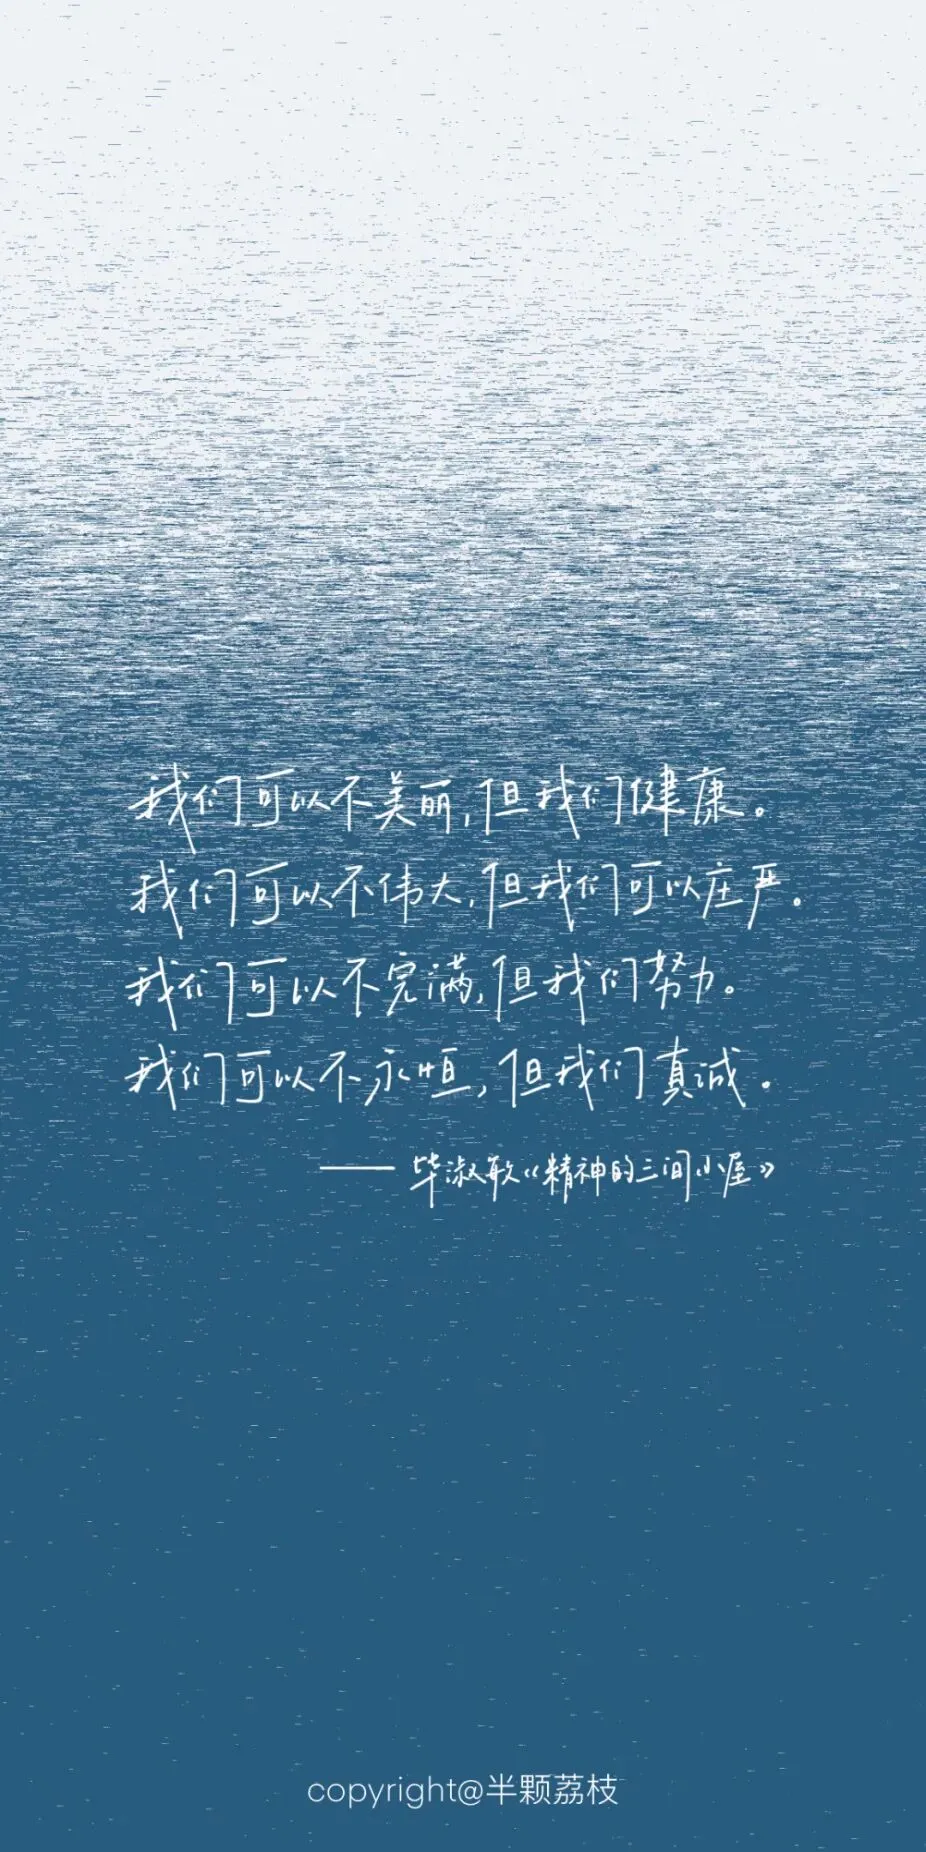 我们可以不美丽,但我们健康。
我们可以不伟大,但我们可以庄严.
我们可以不完满,但我们努力。
我们可以不永恒,但我们真诚.
——毕淑敏《精神的三间小屋》
copyright@半颗荔枝